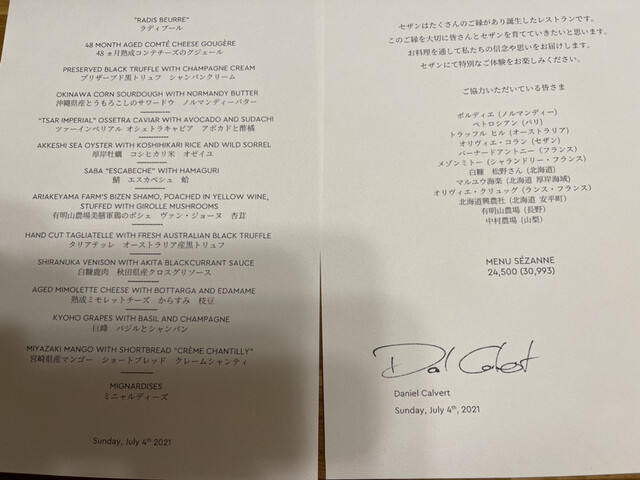 "RADIS BEURRE"
ラディブール
48 MONTH AGED COMTÉ CHEESE GOUGÈRE
48 ヵ月熟成コンテチーズのグジェール
PRESERVED BLACK TRUFFLE WITH CHAMPAGNE CREAM
プリザーブド黒トリュフ シャンパンクリーム
OKINAWA CORN SOURDOUGH WITH NORMANDY BUTTER
沖縄県産とうもろこしのサワードウ ノルマンディーバター
"TSAR IMPERIAL" OSSETRA CAVIAR WITH AVOCADO AND SUDACHI
ツァーインペリアル オシェトラキャビア アボカドと酢橘
AKKESHI SEA OYSTER WITH KOSHIHIKARI RICE AND WILD SORREL
厚岸牡蠣 コシヒカリ米 オゼイユ
SABA "ESCABECHE" WITH HAMAGURI
鯖 エスカベシュ 蛤
ARIAKEYAMA FARM'S BIZEN SHAMO, POACHED IN YELLOW WINE,
STUFFED WITH GIROLLE MUSHROOMS
有明山農場美膳軍鶏のポシェ ヴァン・ジョーヌ 杏茸
HAND CUT TAGLIATELLE WITH FRESH AUSTRALIAN BLACK TRUFFLE
タリアテッレ オーストラリア産黒トリュフ
SHIRANUKA VENISON WITH AKITA BLACKCURRANT SAUCE
白糠鹿肉 秋田県産クロスグリソース
AGED MIMOLETTE CHEESE WITH BOTTARGA AND EDAMAME
熟成ミモレットチーズ からすみ 枝豆
KYOHO GRAPES WITH BASIL AND CHAMPAGNE
巨峰 バジルとシャンパン
MIYAZAKI MANGO WITH SHORTBREAD "CRÈME CHANTILLY"
宮崎県産マンゴー ショートブレッド クレームシャンティ
MIGNARDISES
ミニャルディーズ
Sunday, July 4th 2021
セザンはたくさんのご縁があり誕生したレストランです。
このご縁を大切に皆さんとセザンを育てていきたいと思います。
お料理を通して私たちの信念や思いをお届けします。
セザンにて特別なご体験をお楽しみください。
ご協力いただいている皆さま
ボルディエ (ノルマンディー)
ペトロシアン (パリ)
トラッフル ヒル (オーストラリア)
オリヴィエ・コラン (セザン)
バーナードアントニー (フランス)
メゾンミトー (シャランドリー・フランス)
白糠 松野さん (北海道)
マルユウ海楽 (北海道 厚岸海域)
オリヴィエ・クリュッグ (ランス・フランス)
北海道興農社 (北海道 安平町)
有明山農場 (長野)
中村農場 (山梨)
MENU SÉZANNE
24,500 (30,993)
Dal Calvert
Daniel Calvert
Sunday, July 4th, 2021